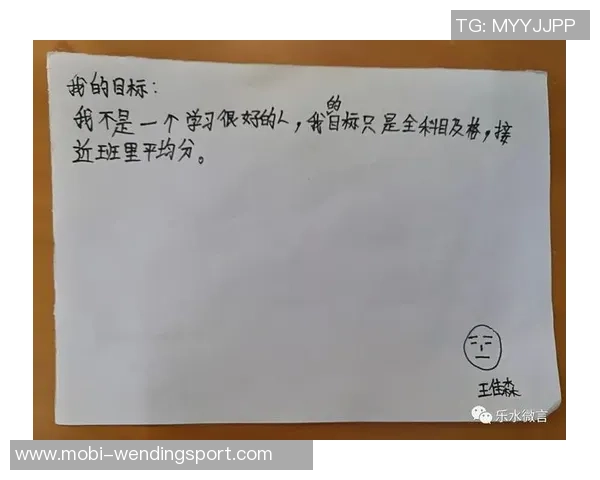 TG: MYYJJPP
我的目标：
我不是一个学习很好的人，我的目标只是全科目及格，接
近班里平均分。
王佳森
乐水微言
www.mobi-wendingsport.com